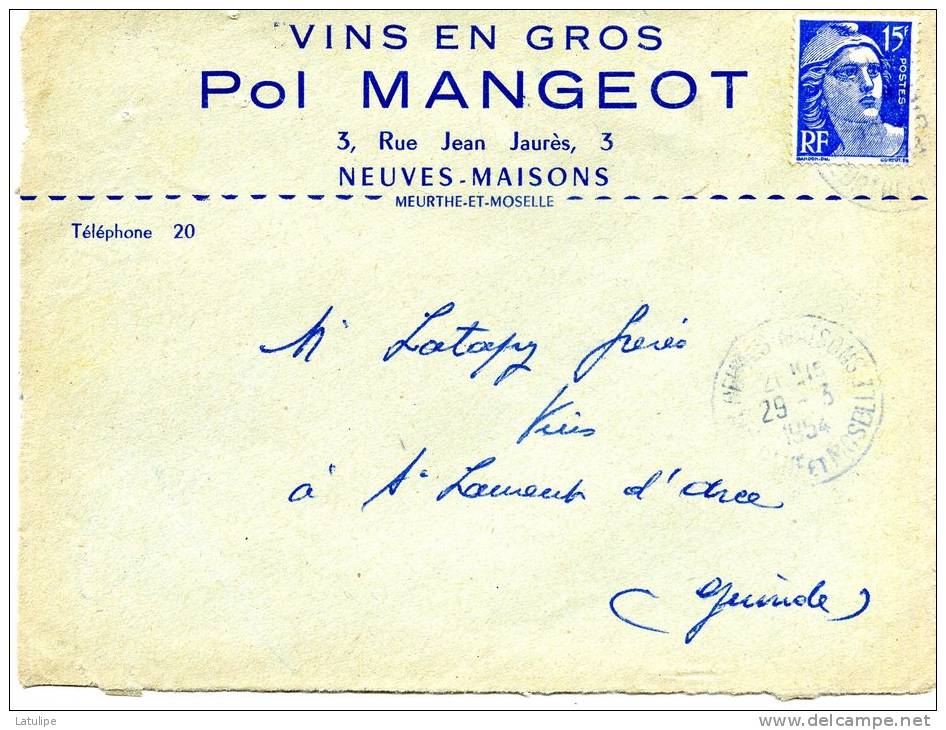 VINS EN GROS
Pol MANGEOT
3, Rue Jean Jaurès, 3
NEUVES-MAISONS
MEURTHE-ET-MOSELLE
Téléphone 20
15F
POSTES
RF
GANDON-DEL.
Mr Latapy frères
Vins
à St Laurent d'Arce
(Gironde)
NEUVES-MAISONS
29 - 3
1954
ET MOSELLE
Latulipe
www.delcampe.net